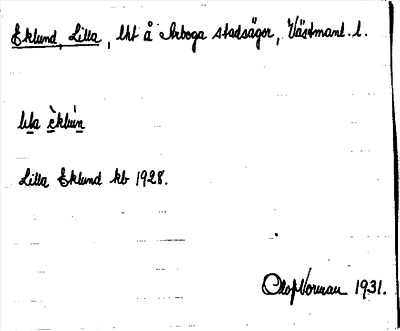 Eklund, Lilla, lht å Arboga stadsägor, Västmanl. l.
Lilla Eklund kb 1928.
Olof Norman 1931.